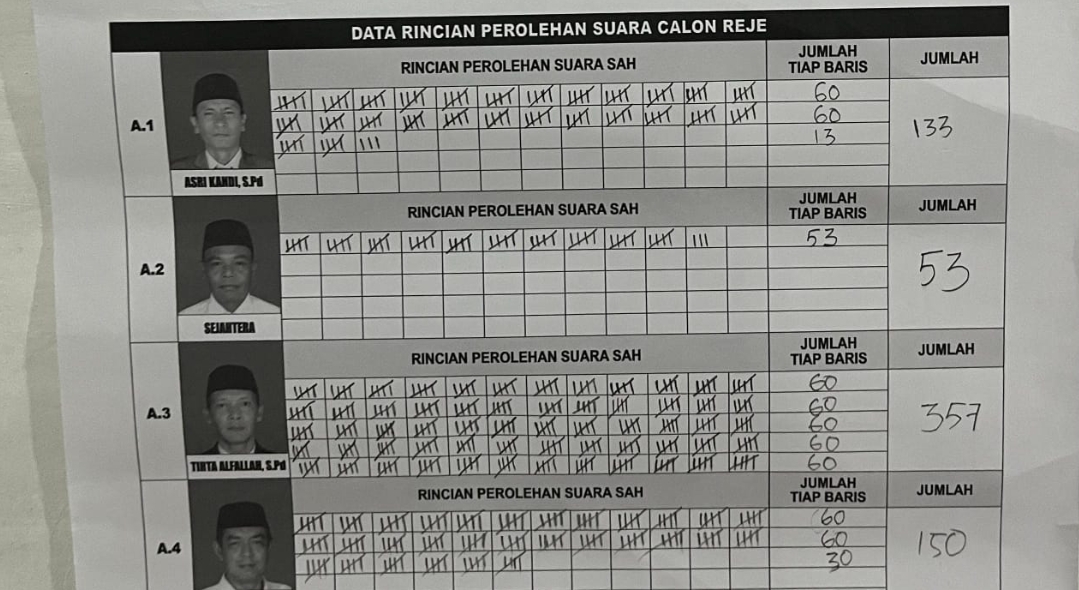 DATA RINCIAN PEROLEHAN SUARA CALON REJE
RINCIAN PEROLEHAN SUARA SAH
JUMLAH TIAP BARIS
JUMLAH
A.1
60
60
13
133
ASRI KANDI, S.Pd
RINCIAN PEROLEHAN SUARA SAH
JUMLAH TIAP BARIS
JUMLAH
A.2
53
53
SEJANTERA
RINCIAN PEROLEHAN SUARA SAH
JUMLAH TIAP BARIS
JUMLAH
A.3
60
60
60
60
60
357
TINTA ALFALLAH, S.Pd
RINCIAN PEROLEHAN SUARA SAH
JUMLAH TIAP BARIS
JUMLAH
A.4
60
60
30
150